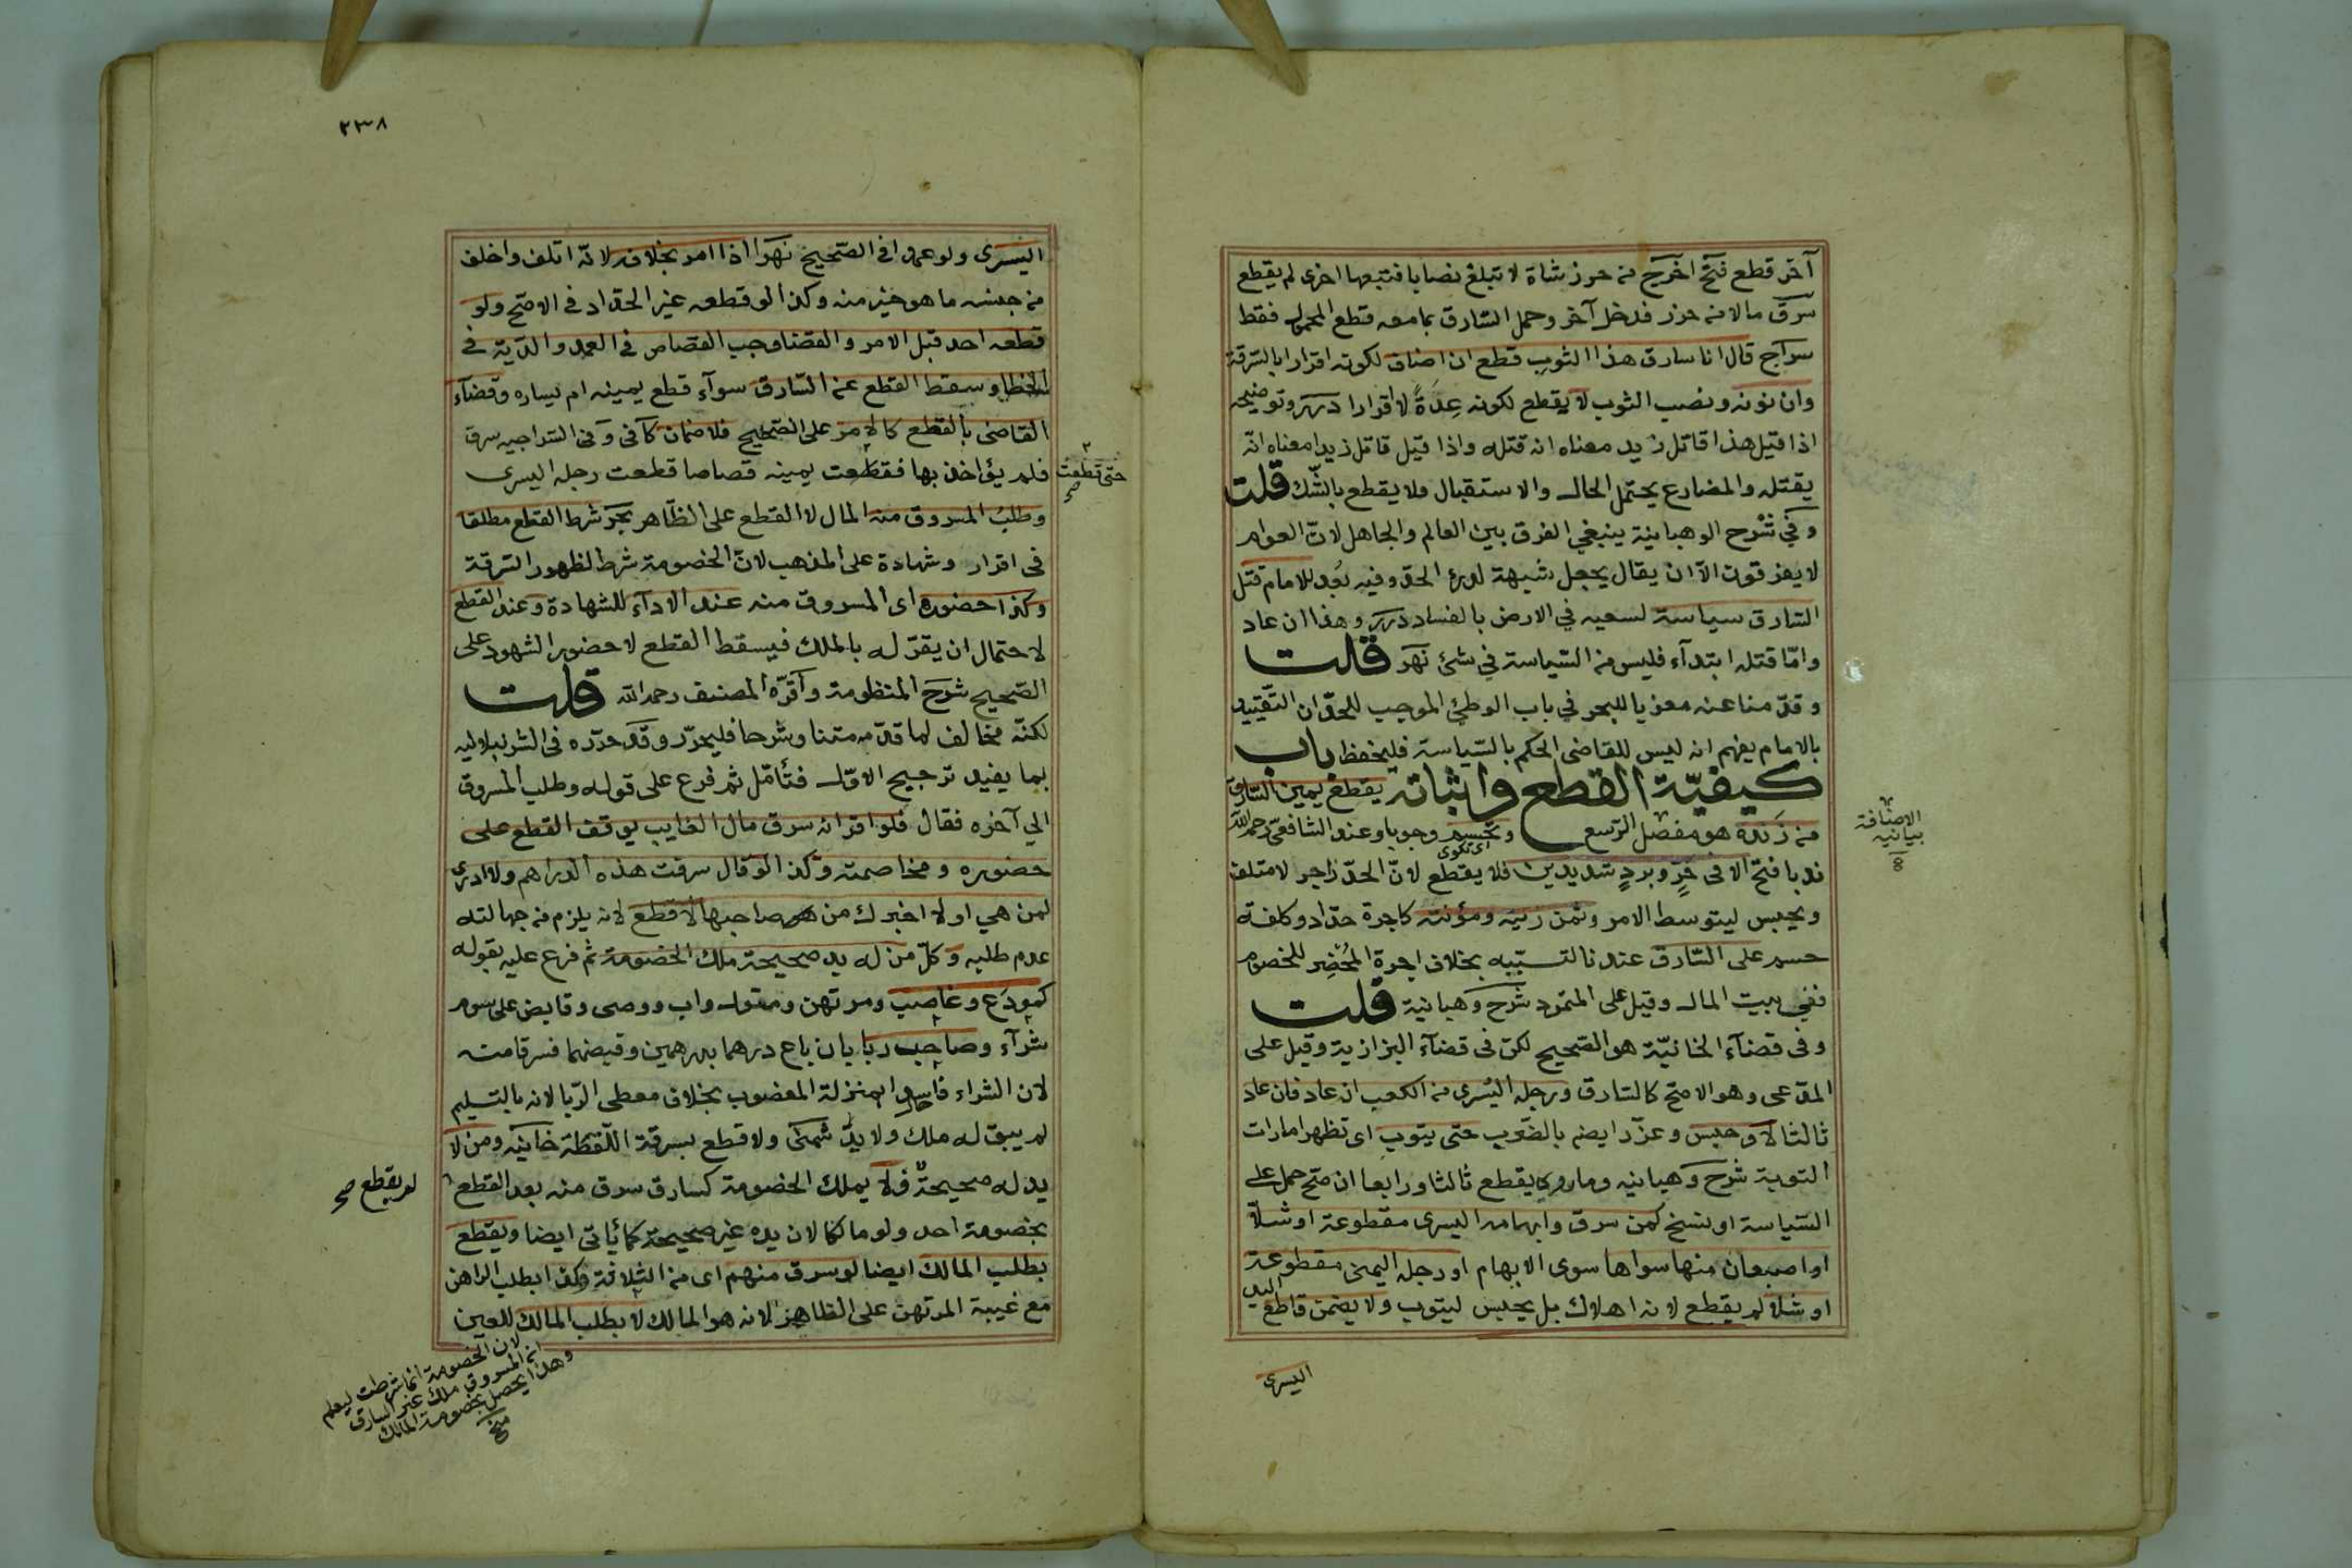 آخر قطع فتح اخرج من حرز شاة لا تبلغ نصابا فتبعها اخرى لم يقطع
سرق مالا من حرز فدخل آخر وحمل السّارق بما معه قطع المحمول فقط
سراج قال انا سارق هذا الثوب قطع ان اضاف لكونه اقرارا بالسّرقة
وان نونه ونصب الثوب لا يقطع لكونه عِدَةً لا اقرارا درر وتوضيحه
اذا قيل هذا قاتل زيد معناه انه قتله واذا قيل قاتل زيدا معناه انّه
يقتله والمضارع يحتمل الحال والاستقبال فلا يقطع بالشّك قلت
وفي شرح الوهبانية ينبغي الفرق بين العالم والجاهل لانّ العوام
لا يفرقون الا ان يقال يجعل شبهة لدرء الحد وفيه بُعد للامام قتل
السّارق سياسة لسعيه في الارض بالفساد درر وهذا ان عاد
وامّا قتله ابتدآء فليس من السّياسة في شئ نهر قلت
وقدّمنا عنه معزيا للبحر في باب الوطئ الموجب للحدّ ان التّقييد
بالامام يفهم انه ليس للقاضى الحكم بالسّياسة فليحفظ باب
كيفيّة القطع واثباته يقطع يمين السّارق
من زنده هو مفصل الرّسغ وتحسم وجوبا وعند الشافعى رحمه الله
اى تكوى
ندبا فتح الا فى حَرٍّ وبردٍ شديدين فلا يقطع لانّ الحدّ زاجر لا متلف
ويحبس ليتوسط الامر وثمن زيته ومؤنته كاجرة حدّاد وكلفة
حسم على السّارق عندنا لتسبّبه بخلاف اجرة المُحْضِر للخصوم
ففي بيت المال وقيل على المتمرد شرح وهبانية قلت
وفى قضآء الخانيّة هو الصّحيح لكن فى قضآء البزازية وقيل على
المدّعى وهو الاصحّ كالسّارق ورجله اليُسرى من الكعب ان عاد فان عاد
ثالثا لا وحبس وعزّر ايضا بالضّرب حتى يتوب اى تظهر امارات
التوبة شرح وهبانيه وما روى يقطع ثالثا ورابعا ان صحّ حمل على
السّياسة او نسخ كمن سرق وابهامه اليسرى مقطوعة او شلّا
او اصبعان منها سواها سوى الابهام او رجله اليمنى مقطوعة
او شلا لم يقطع لانه اهلاك بل يحبس ليتوب ولا يضمن قاطع اليد
اليسرى
الاضافة
بيانيه
٢٣٨
اليسرى ولو عمدا فى الصّحيح نهر اذا امر بخلافه لانّه اتلف واخلف
من جنسه ما هو خير منه وكذا لو قطعه غير الحدّاد فى الاصحّ ولو
قطعه احد قبل الامر والقضا وجب القصاص فى العمد والدّية فى
الخطا وسقط القطع عن السّارق سوآء قطع يمينه ام يساره وقضآء
القاضى بالقطع كالامر على الصّحيح فلا ضمان كافى وفى السّراجيه سرق
فلم يؤاخذ بها فقطعت يمينه قصاصا قطعت رجله اليسرى
حتى قطعت صح
وطلبُ المسروق منه المال لا القطع على الظّاهر بحر شرط القطع مطلقا
فى اقرار وشهادة على المذهب لانّ الخصومة شرط لظهور السّرقة
وكذا حضوره اى المسروق منه عند الادآء للشهادة وعند القطع
لاحتمال ان يقرّ له بالملك فيسقط القطع لا حضور الشهود على
الصّحيح شرح المنظومة واقرّه المصنيف رحمه الله قلت
لكنّه مخالف لما قدّمه متنا وشرحا فليحرّر وقد حرّره فى الشرنبلاليه
بما يفيد ترجيح الاوّل فتأمّل ثم فرع على قوله وطلب المسروق
الي آخره فقال فلو اقر انه سرق مال الغايب يوقف القطع على
حضوره ومخاصمته وكذا لو قال سرقت هذه الدراهم ولا ادرى
لمن هي او لا اخبرك من صاحبها لا قطع لانه يلزم من جهالته
عدم طلبه وكلّ من له يد صحيحة ملك الخصومة ثم فرع عليه بقوله
كمودَع وغاصب ومرتهن ومتول واب ووصى وقابض على سوم
شرآء وصاحب ربا بان باع درهما بدرهمين وقبضهما فسرقا منه
لان الشراء فاسدا بمنزلة المغصوب بخلاف معطى الرّبا لانه بالتسليم
لم يبق له ملك ولا يدّ شمنى ولا قطع بسرقة اللّقطة خانيه ومن لا
يد له صحيحة فلا يملك الخصومة كسارق سرق منه بعد القطع
لم يقطع صح
بخصومة احد ولو مالكا لان يده غير صحيحة كما يأتى ايضا ويقطع
بطلب المالك ايضا لو سرق منهم اى من الثلاثة وكذا بطلب الراهن
مع غيبة المرتهن على الظاهر لانه هو المالك لا بطلب المالك للعين
لان الخصومة انما شرطت ليعلم
ان المسروق ملك غير السارق
وهذا يحصل بخصومة المالك
منح